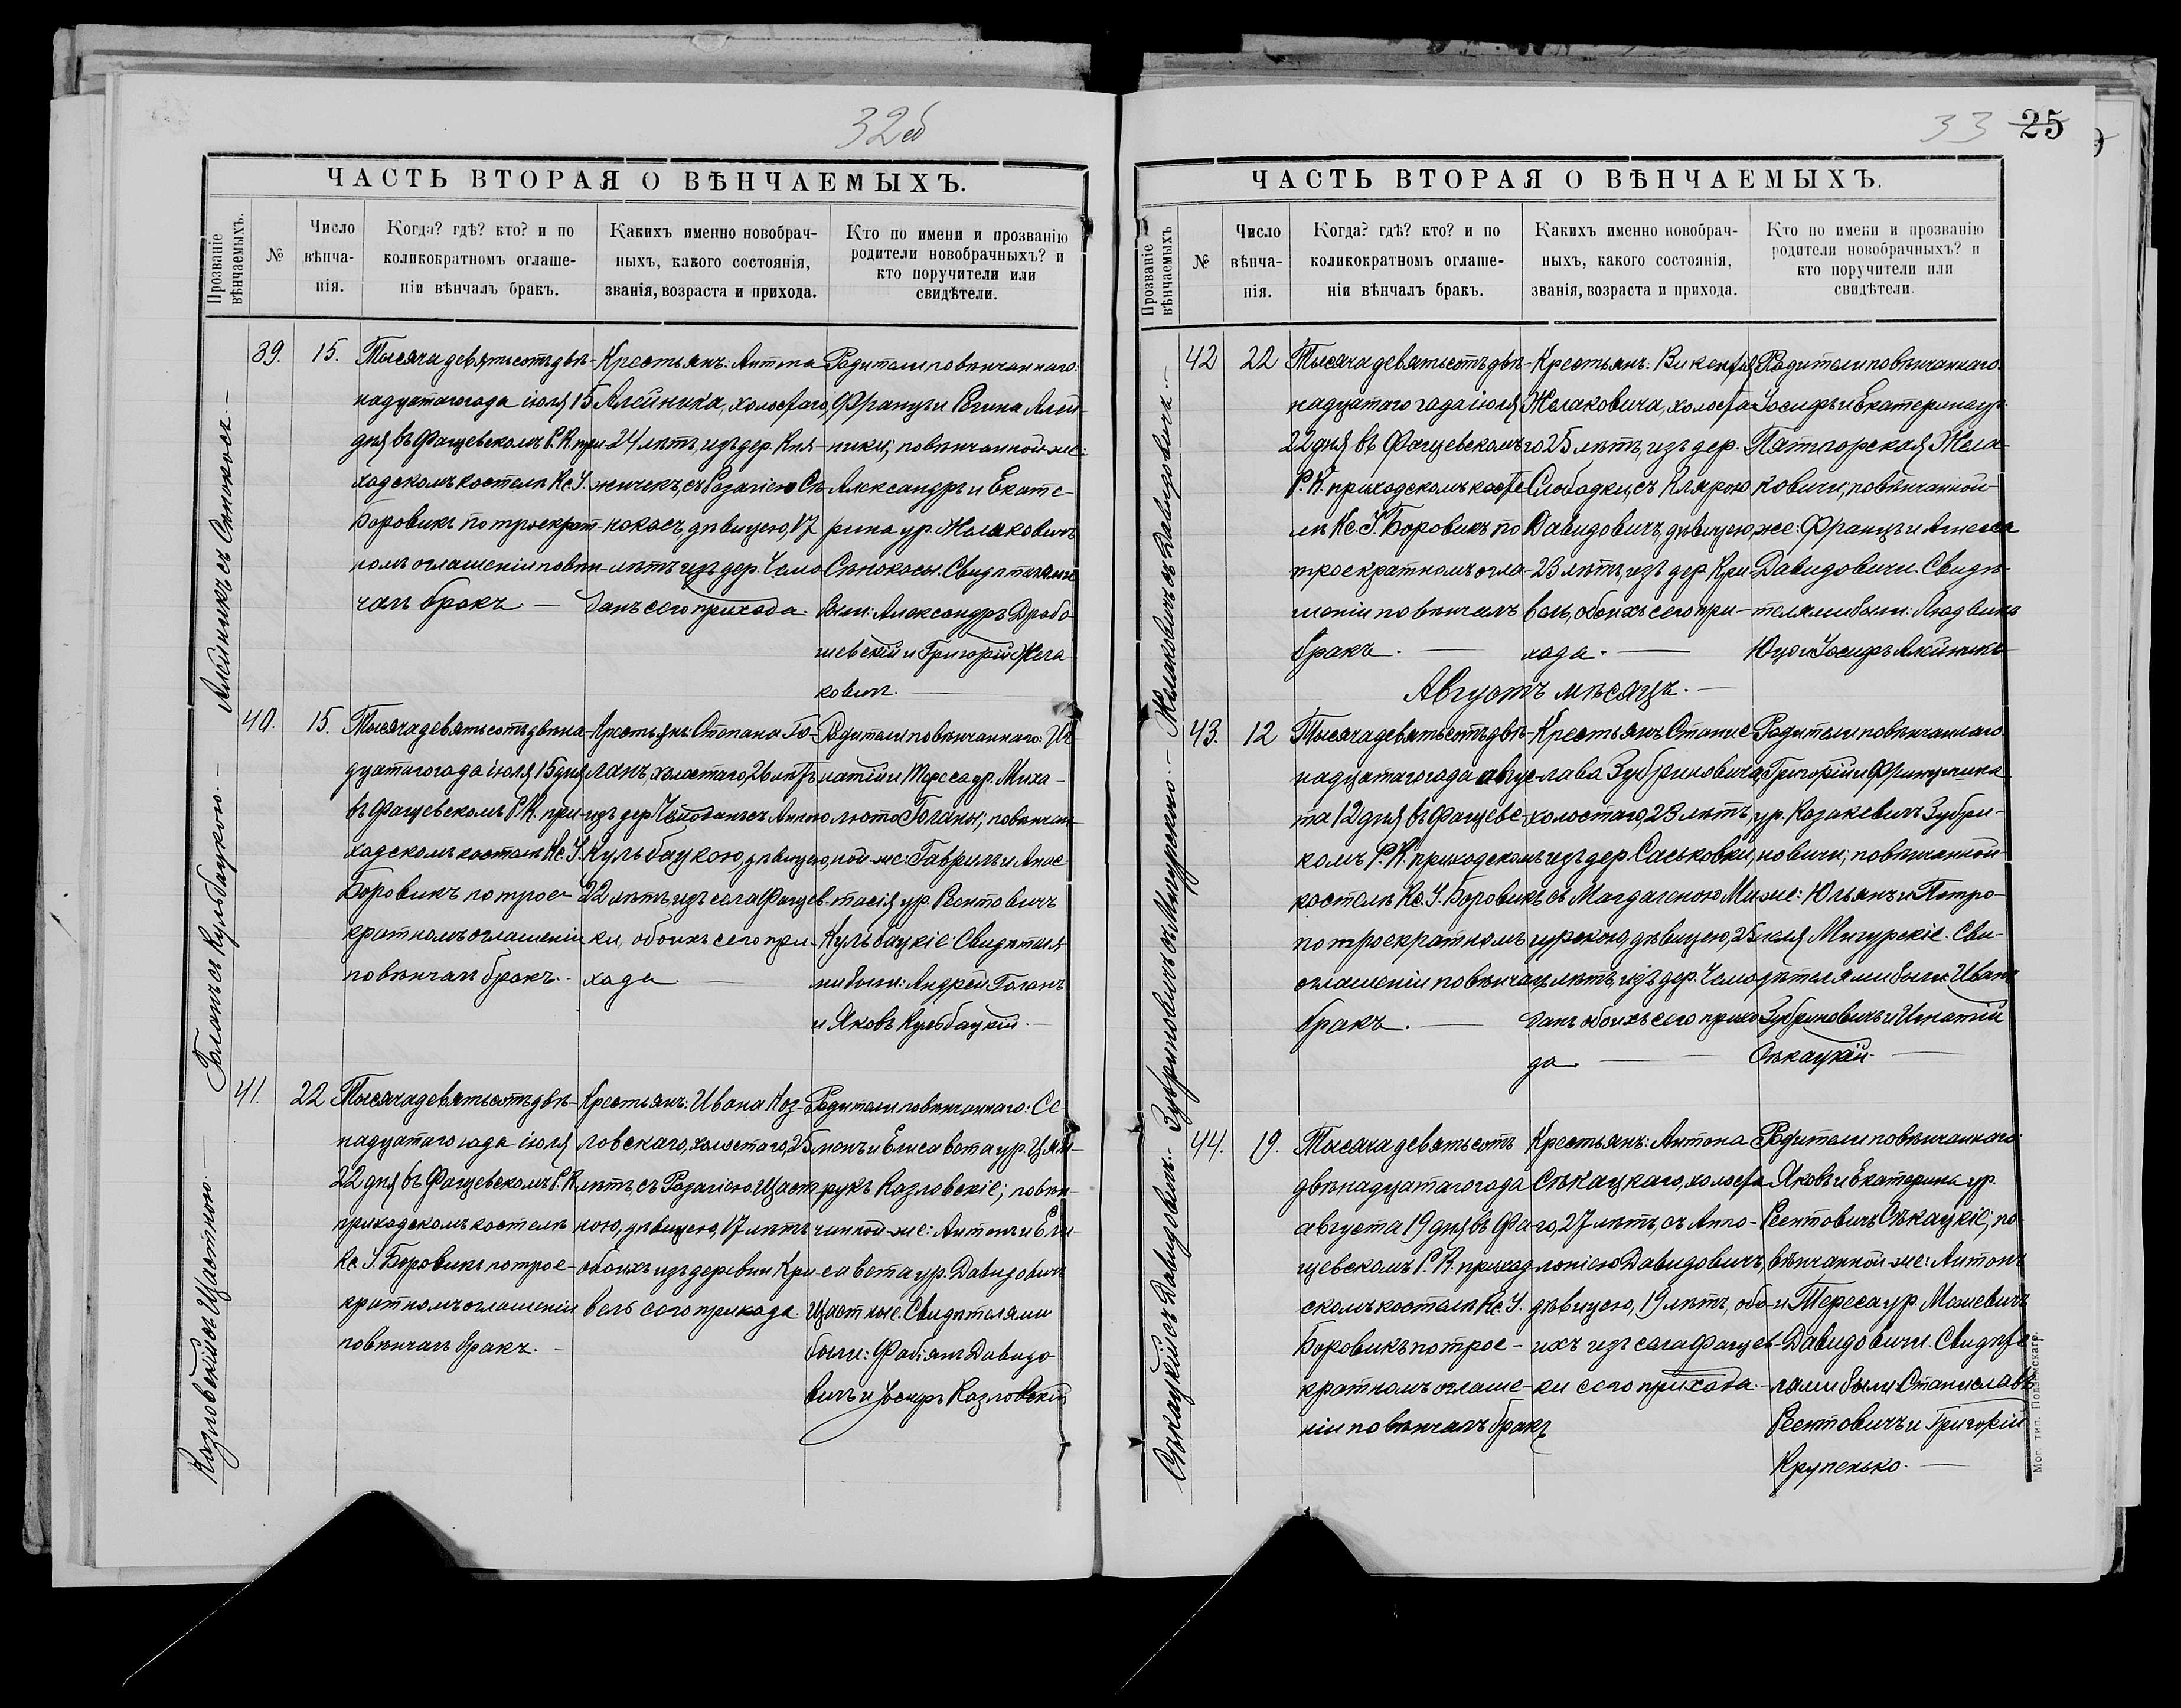 32об
ЧАСТЬ ВТОРАЯ О ВѢНЧАЕМЫХЪ.
Прозваніе вѣнчаемыхъ.
№
Число вѣнча-нія.
Когда? гдѣ? кто? и по коликократномъ оглаше-ніи вѣнчалъ бракъ.
Какихъ именно новобрач-ныхъ, какого состоянія, званія, возраста и прихода.
Кто по имени и прозванію родители новобрачныхъ? и кто поручители или свидѣтели.
Алейникъ съ Сѣнокосъ.
39.
15.
Тысяча девятьсотъ двѣ-
надцатаго года іюля 15
дня въ Фащевскомъ Р. К. при-
ходскомъ костелѣ Кс. І.
Боровикъ по троекрат-
номъ оглашеніи повѣн-
чалъ бракъ
Крестьянъ: Антона
Алейника, холостаго,
24 лѣтъ, изъ дер. Кня-
жичекъ, съ Розаліею Сѣ-
нокосъ, дѣвицею, 17
лѣтъ изъ дер. Чемо-
данъ сего прихода.
Родители повѣнчаннаго:
Францъ и Регина Алей-
ники; повѣнчанной-же:
Александръ и Екате-
рина ур. Желаковичъ
Сѣнокосы. Свидѣтелями
были: Александръ Дробо-
шевскій и Григорій Жела
ковичъ.
Голанъ съ Кульбацкою.
40.
15.
Тысяча девятьсотъ двѣна-
дцатаго года іюля 15 дня
въ Фащевскомъ Р. К. при-
ходскомъ костелѣ Кс. І.
Боровикъ по трое-
кратномъ оглашеніи
повѣнчалъ бракъ.
Крестьянъ: Степана Го-
ланъ, холостаго, 26 лѣтъ
изъ дер. Чемоданъ съ Анною
Кульбацкою, дѣвицею,
22 лѣтъ изъ села Фащев-
ки, обоихъ сего при-
хода
Родители повѣнчаннаго: Иг-
натій и Тереса ур. Миха-
люто Голаны; повѣнчан-
ной-же: Гавріилъ и Анас-
тасія ур. Рентовичъ
Кульбацкіе. Свидѣтеля-
ми были: Андрей Голанъ
и Яковъ Кульбацкій.
Козловскій съ Щастною.
41.
22
Тысяча девятьсотъ двѣ-
надцатаго года іюля
22 дня въ Фащевскомъ Р. К.
приходскомъ костелѣ
Кс. І. Боровикъ по трое-
кратномъ оглашеніи
повѣнчалъ бракъ.
Крестьянъ: Ивана Коз-
ловскаго, холостаго, 25
лѣтъ, съ Розаліею Щаст-
ною, дѣвицею, 17 лѣтъ
обоихъ изъ деревни Кри-
вель сего прихода
Родители повѣнчаннаго: Се-
менъ и Елисавета ур.
Козловскіе; повѣн-
чанной-же: Антонъ и Ели-
савета ур. Давидовичъ
Щастные. Свидѣтелями
были: Фабіянъ Давидо
вичъ и Іосифъ Козловскій
33 25
ЧАСТЬ ВТОРАЯ О ВѢНЧАЕМЫХЪ.
Прозваніе вѣнчаемыхъ
№
Число вѣнча-нія.
Когда? гдѣ? кто? и по коликократномъ оглаше-ніи вѣнчалъ бракъ.
Какихъ именно новобрач-ныхъ, какого состоянія, званія, возраста и прихода.
Кто по имени и прозванію родители новобрачныхъ? и кто поручители или свидѣтели.
Желаковичъ съ Давидовичъ.
42
22
Тысяча девятьсотъ двѣ-
надцатаго года іюля
22 дня въ Фащевскомъ
Р. К. приходскомъ косте
лѣ Кс. І. Боровикъ по
троекратномъ огла-
шеніи повѣнчалъ
бракъ.
Крестьянъ: Викентія
Желаковича, холоста
го 25 лѣтъ, изъ дер.
Слободки, съ Клярою
Давидовичъ, дѣвицею,
23 лѣтъ, изъ дер. Кри
вель, обоихъ сего при-
хода.
Родители повѣнчаннаго:
Іосифъ и Екатерина ур.
Пятигорская Жела-
ковичи, повѣнчанной-
же: Францъ и Агнеса
Давидовичи. Свидѣ-
телями были: Людвикъ
Юцо и Іосифъ Алейникъ
Августъ мѣсяцъ.
Зубриновичъ съ Мигурскою.
43.
12
Тысяча девятьсотъ двѣ-
надцатаго года авгус
та 12 дня въ Фащевс-
комъ Р. К. приходскомъ
костелѣ Кс. І. Боровикъ
по троекратномъ
оглашеніи повѣнчалъ
бракъ.
Крестьянъ Станис
лава Зубриновича
холостаго, 23 лѣтъ,
изъ дер. Саськовки,
съ Магдаленою Ми
гурскою, дѣвицею, 25
лѣтъ, изъ дер. Чемо
данъ обоихъ сего прихо
да
Родители повѣнчаннаго:
Григорій и Францишка
ур. Казакевичъ Зубри-
новичи; повѣнчанной-
же: Юльянъ и Петро-
неля Мигурскіе. Сви-
дѣтелями были: Иванъ
Зубриновичъ и Игнатій
Сѣкацкій.
Сѣкацкій съ Давидовичъ.
44.
19.
Тысяча девятьсотъ
двѣнадцатаго года
августа 19 дня въ Фа-
щевскомъ Р. К. приход-
скомъ костелѣ Кс. І.
Боровикъ по трое-
кратномъ оглаше-
ніи повѣнчалъ бракъ
Крестьянъ: Антона
Сѣкацкаго, холоста
го, 27 лѣтъ, съ Аппо-
лоніею Давидовичъ,
дѣвицею, 19 лѣтъ, обо-
ихъ изъ села Фащев-
ки сего прихода.
Родители повѣнчаннаго:
Яковъ и Екатерина ур.
Рентовичъ Сѣкацкіе; по-
вѣнчанной-же: Антонъ
и Тереса ур. Мацевичъ
Давидовичи. Свидѣте
лями были Станиславъ
Рентовичъ и Григорій
Крупенько.
Мог. тип. Подземскаг